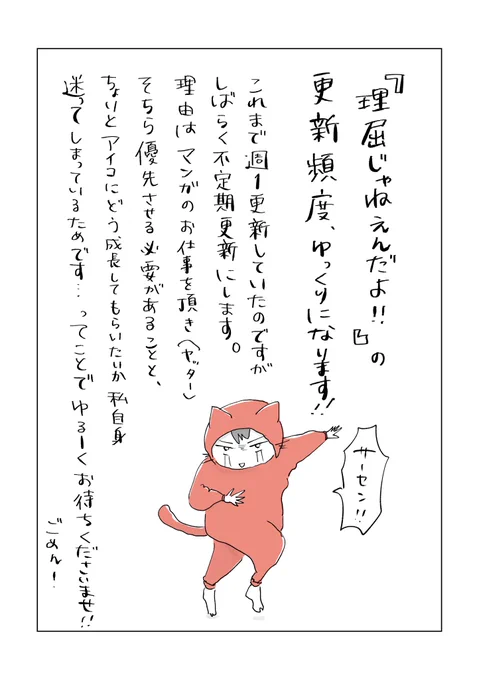 『理屈じゃねえんだよ!!』の
更新頻度、ゆっくりになります!!
これまで週1更新していたのですが
しばらく不定期更新にします。
理由はマンガのお仕事を頂き(ヤッター)
そちら優先させる必要があることと、
ちぃとアイコにどう成長してもらいたいか私自身
迷ってしまっているためです…ってことでゆるーくお待ちくださいませ!!
ごめん!
サーセン!!